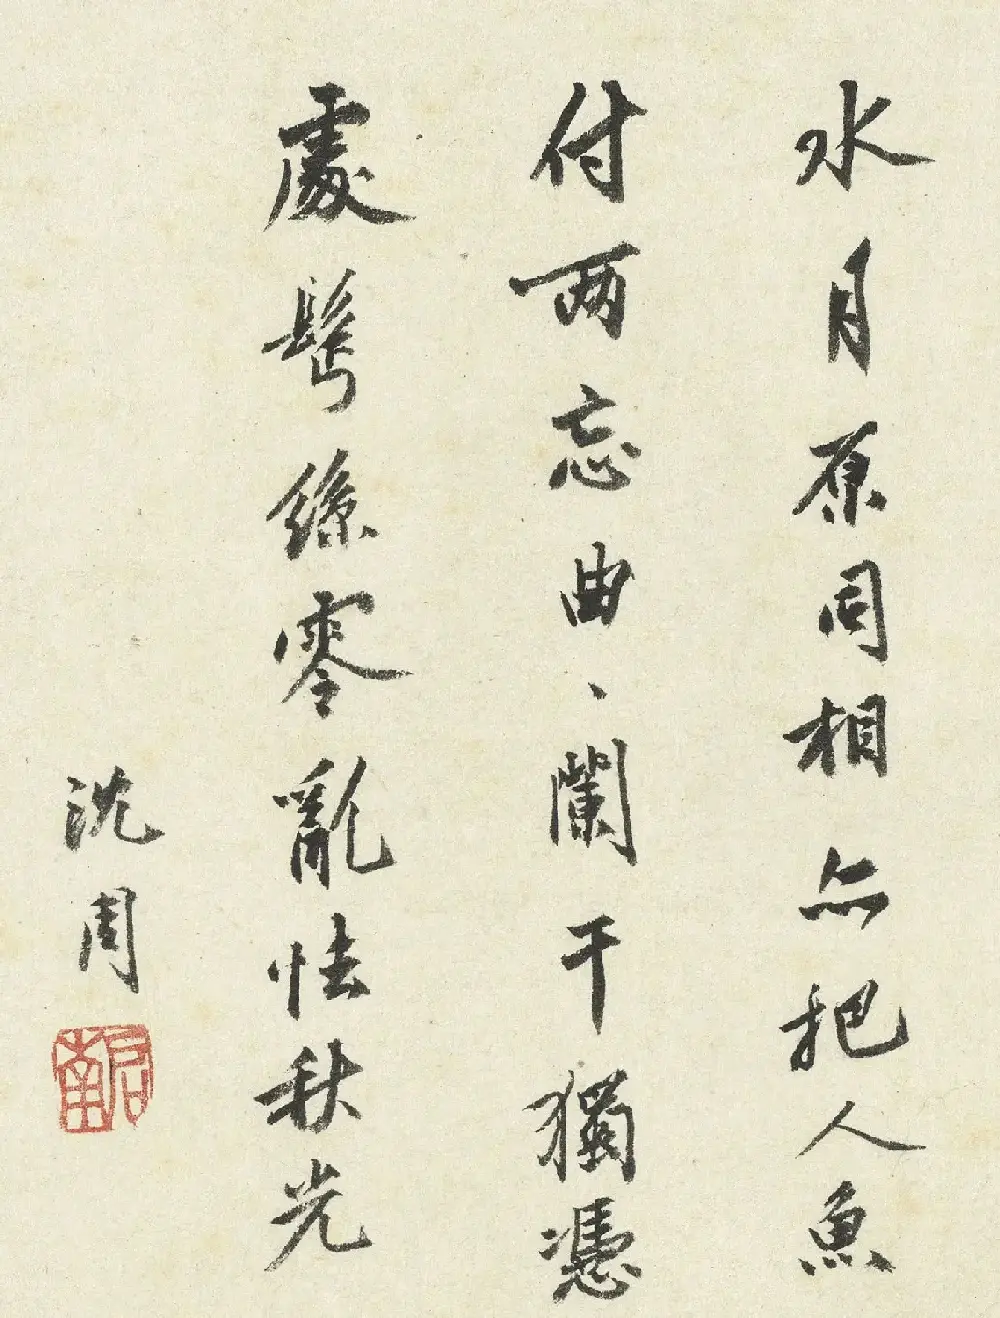 水月原同相亦把人魚
付兩忘曲、闌干獨憑
處鬢絲零亂怯秋光
沈周
啟南